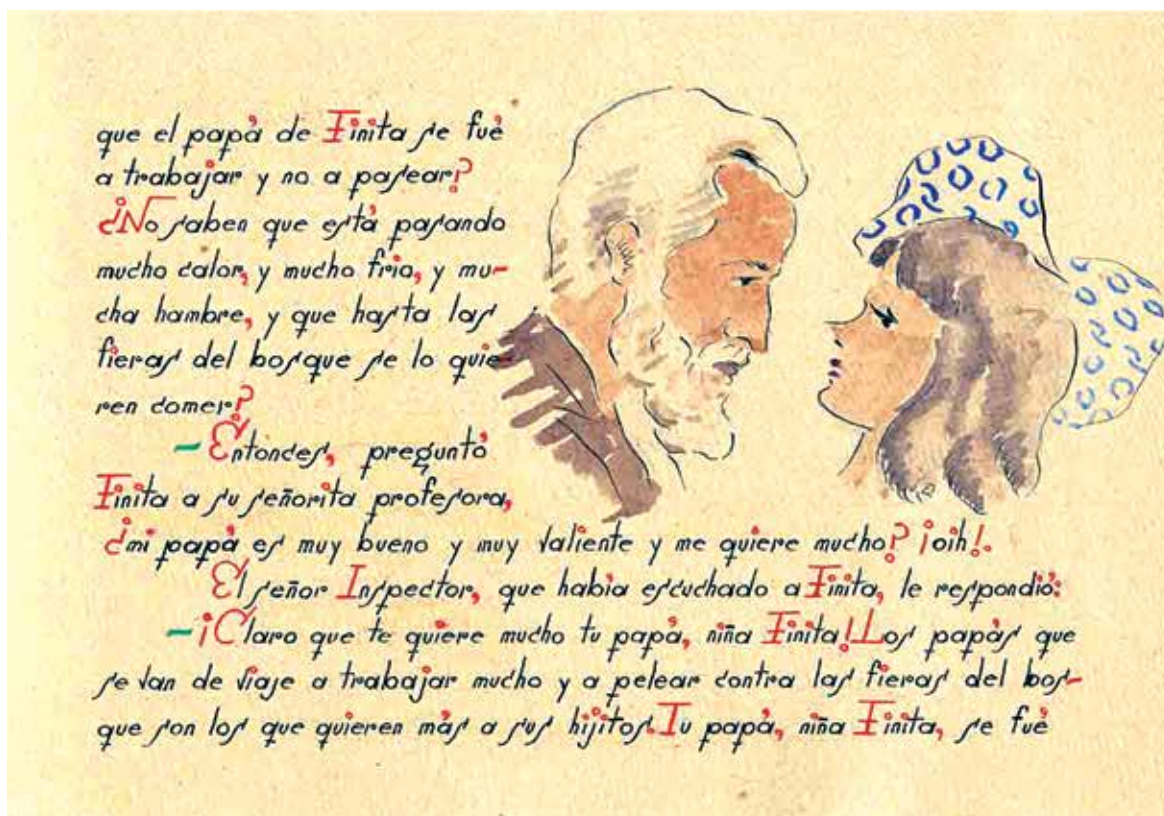 que el papá de Finita se fué
a trabajar y no a pasear?
¿No saben que está pasando
mucho calor, y mucho frio, y mu-
cha hambre, y que hasta las
fieras del bosque se lo quie-
ren comer?
— Entonces, preguntó
Finita a su señorita profesora,
¿mi papá es muy bueno y muy valiente y me quiere mucho? ¡oih!.
El señor Inspector, que habia escuchado a Finita, le respondió:
— ¡Claro que te quiere mucho tu papá, niña Finita! Los papás que
se van de viaje a trabajar mucho y a pelear contra las fieras del bos-
que son los que quieren más a sus hijitos. Tu papá, niña Finita, se fué